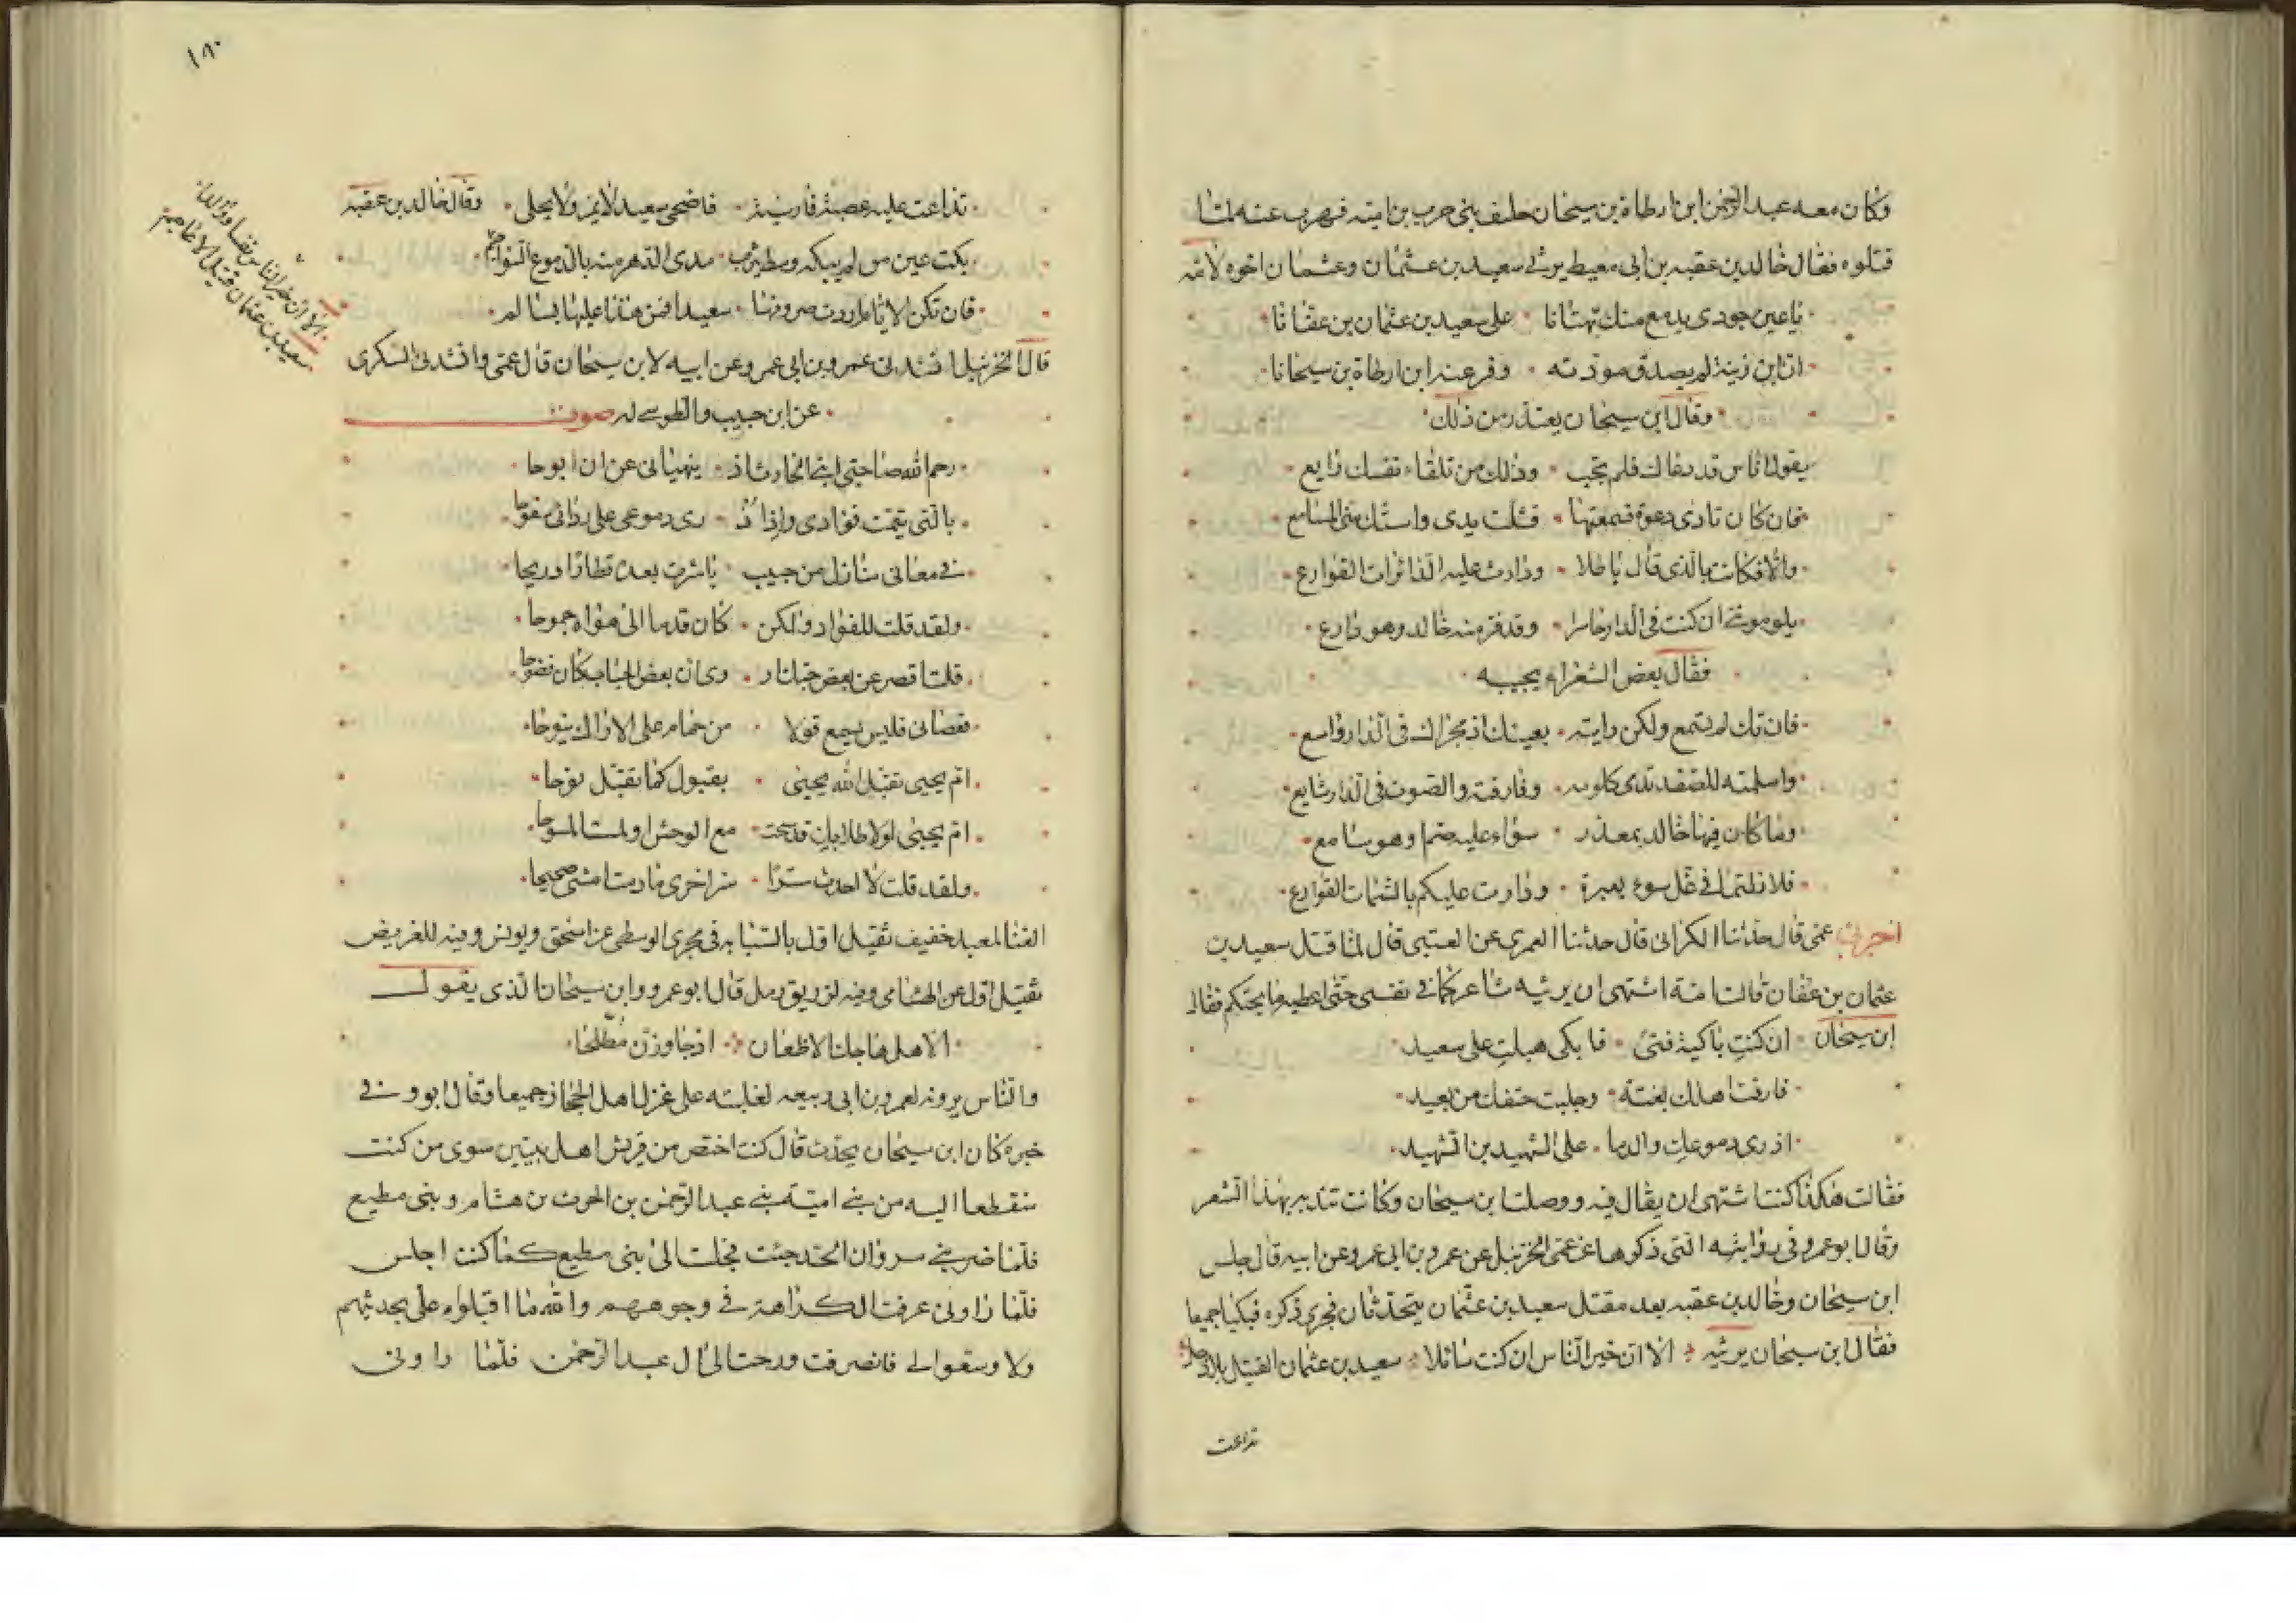 وكان معه عبد الرحمن ابن ارطاة بن سيحان حليف بنى حرب بن امية فهرب عنه لما
قتلوه فقال خالد بن عقبه بن ابى معيط يرثى سعيد بن عثمان وعثمان اخوه لامه
ياعين جودى بدمع منك تهتانا على سعيد بن عثمان بن عفانا
ان ابن زينة لم يصدق مودته وفر عنه ابن ارطاة بن سيحانا
وقال ابن سيحان يعتذر من ذلك
يقول اناس قد دعاك فلم تجب وذلك من تلقاء نفسك رايع
فان كان نادى دعوة فسمعتها فشلت يدى واستك منى المسامع
والا فكانت بالذى قال باطلا ودارت عليه الدائرات القوارع
يلوموننى ان كنت فى الدار حاسرا وقد فر منه خالد وهو دارع
فقال بعض الشعراء يجيبه
فان تك لم تسمع ولكن رايته بعينك اذ مجراك فى الدار واسع
واسلمته للصغد تدمى كلومه وفارقته والصوت فى الدار شايع
وما كان فيها خالد بمعذر سواء عليه صم او هو سامع
فلا زلتما فى غل سوء بعبرة ودارت عليكم بالشمات القوارع
اخبرنى عمى قال حدثنا الكرانى قال حدثنا العمرى عن العتبى قال لما قتل سعيد بن
عثمان بن عفان قالت امه اشتهى ان يرثيه شاعر كما فى نفسى حتى اعطيه ما يحتكم فقال
ابن سيحان ان كنت باكية فتى فابكى هبلت على سعيد
فارقت اهلك بغتة وجلبت حتفك من بعيد
اذرى دموعك والدما على الشهيد بن الشهيد
فقالت هكذا كنت اشتهى ان يقال فيه ووصلت ابن سيحان وكانت تندبه بهذا الشعر
وقال ابو عمرو فى روايته التى ذكرها عن عمى الحزنبل عن عمرو بن ابى عمرو عن ابيه قال جلس
ابن سيحان وخالد بن عقبه بعد مقتل سعيد بن عثمان يتحدثان فجرى ذكره فبكيا جميعا
فقال ابن سيحان يرثيه الا ان خير الناس ان كنت سائلا سعيد بن عثمان القتيل بلا ذحل
تداعت
١٨٠
تداعت عليه عصبة فارسية فاضحى سعيد لا يمر ولا يحلى وقال خالد بن عقبه
الا ان خير الناس نفسا ووالدا
سعيد بن عثمان قتيل الاعاجم
بكت عين من لم يبكه وسط يثرب مدى الدهر منه بالدموع السواجم
فان تكن الايام اردت صروفها سعيدا فمن هذا عليها بسالم
قال الحزنبل انشدنى عمرو بن ابى عمرو عن ابيه لابن سيحان قال عمى وانشدنى السكرى
عن ابن حبيب والطوسى له صوت
رحم الله صاحبى ابنى الحارث اذ ينهيانى عن ان ابوحا
بالتى تيمت فؤادى واذ اذ رى دموعى على ردائى سفوحا
فى مغانى منازل من حبيب باشرت بعده قطارا وريحا
ولقد قلت للفؤاد ولكن كان قدما الى هواه جموحا
قلت اقصر عن بعض حبك ار وى ان بعض الحباب كان فضوحا
فعصانى فليس يسمع قولا من حمام على الاراك ينوحا
ام يحيى تقبل الله يحيى بقبول كما تقبل نوحا
ام يحيى لولا طلابك قد سحت مع الوحش او لبست المسوحا
ولقد قلت لا احدث سرا سر اخرى ما دمت امشى صحيحا
الغنا لمعبد خفيف ثقيل اول بالسبابه فى مجرى الوسطى عن اسحق ويونس وفيه للغريض
ثقيل اول عن الهشامى وفيه لزريق رمل قال ابو عمرو وابن سيحان الذى يقول
الا هل هاجك الاظعان اذ جاوزن مطلحا
والناس يروونه لعمر بن ابى ربيعه لغلبته على غزل اهل الحجاز جميعا وقال ابو و فى
خبره كان ابن سيحان يحدث قال كنت اختص من قريش اهل بيتين سوى من كنت
منقطعا اليه من بنى امية بنى عبد الرحمن بن الحرث بن هشام وبنى مطيع
فلما ضربنى مروان الحد جئت فجلست الى بنى مطيع كما كنت اجلس
فلما راونى عرفت الكراهة فى وجوههم والله ما اقبلوا على بحديثهم
ولا وسعوا لى فانصرفت ورحت الى ال عبد الرحمن فلما راونى